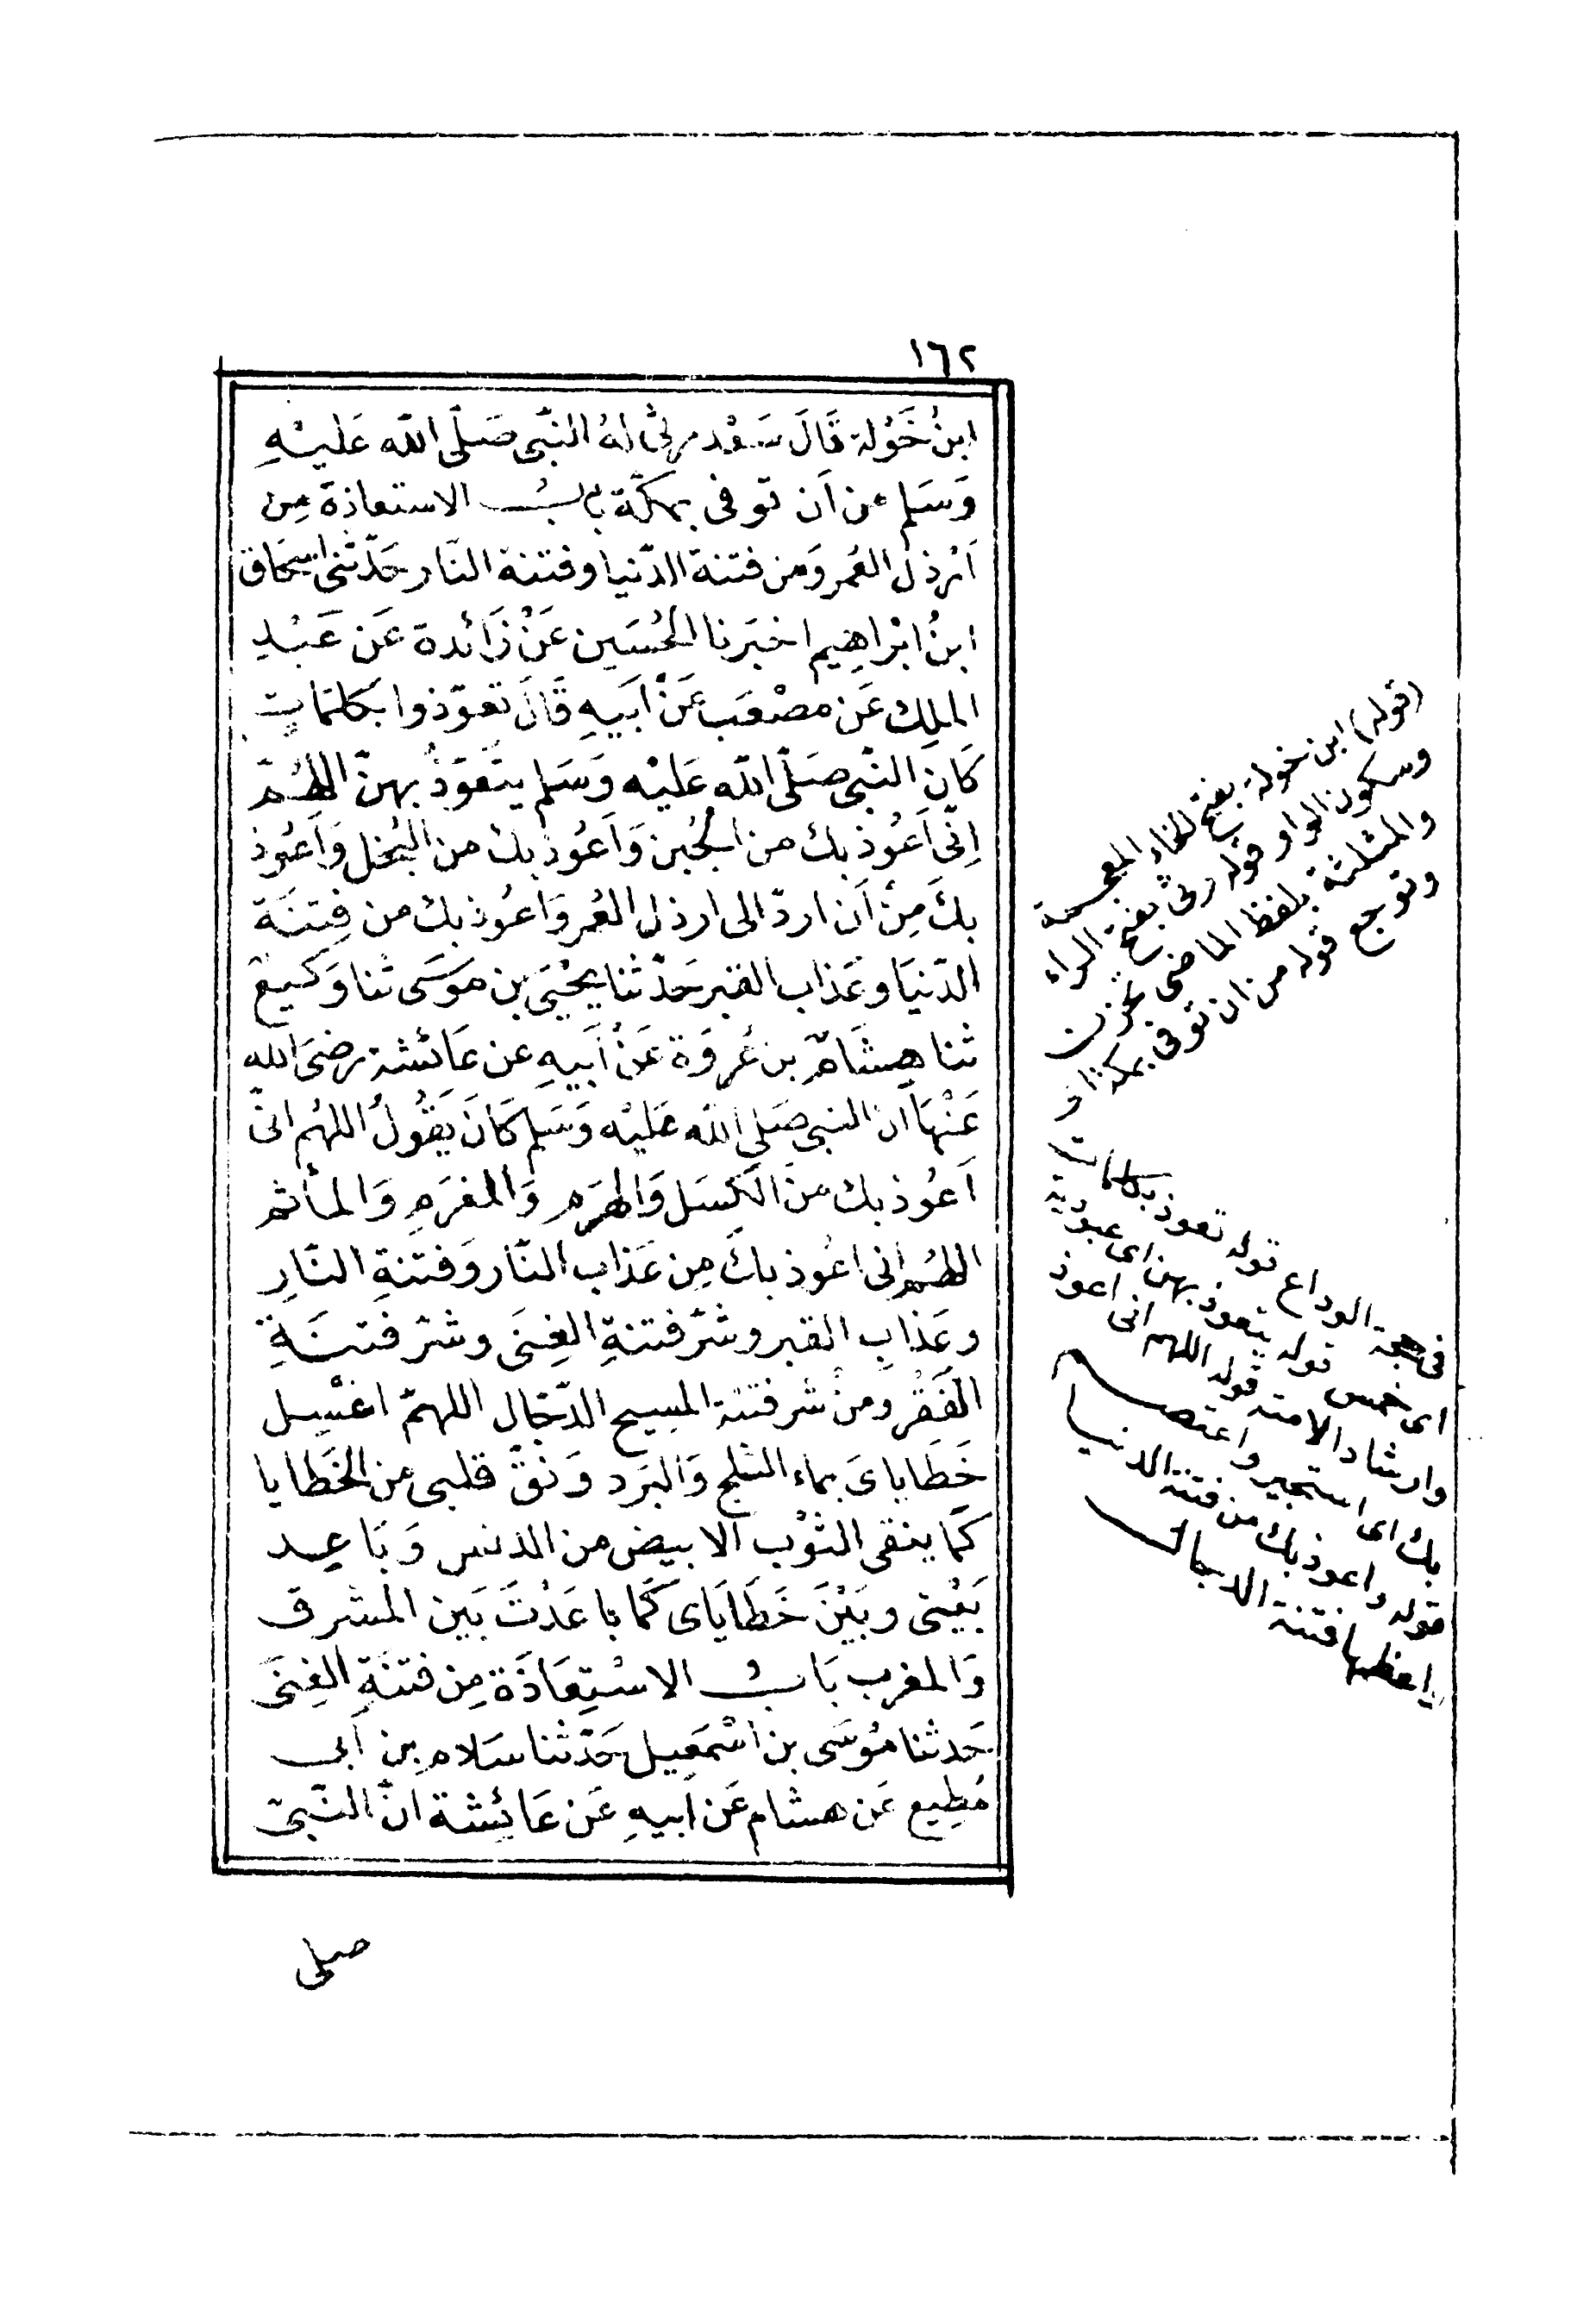 ١٦٢
ابنُ خَوْلة قَالَ سَعْد رثى لهُ النَّبى صَلَّى الله عَليْهِ
وَسَلم من اَن توفى بمكّة بابُ الاستعاذة مِن
اَرذل العُمر وَمن فتنة الدّنيا وفتنة النَّار حَدّثنى اسحَاق
ابنُ ابْراهِيم اخبَرنا الحُسَين عَنْ زَائدة عَن عَبْدِ
الملِك عَن مصْعَب عَنْ اَبيهِ قَالَ تعوّذوا بكلمَاتٍ
كَان النَّبى صَلّى الله عَليْه وَسَلم يتَعَوّذُ بهنّ اللهُمّ
اِنّى اَعُوذ بك من الجُبن وَاَعُوذ بك من البُخل وَاَعُوذ
بكَ مِنْ اَن اردّ الى ارذل العُمر وَاَعُوذ بك من فِتنَة
الدّنيَا وعَذاب القبر حَدّثنا يحْيَى بن مُوسَى ثنا وَكيع
ثنا هِشَامُ بن عُروَة عَنْ اَبيهِ عن عَائشة رضىَ الله
عَنْهَا ان النبى صَلى الله عَليْه وَسَلم كَانَ يَقُولُ اللهُم انّى
اَعُوذ بك منَ الكَسَل وَالهرَمِ وَالمغرَمِ وَالمأثم
اللهُم انى اعُوذ بكَ مِن عَذاب النّار وَفتنةِ النّارِ
وعَذابِ القبر وشرّ فتنةِ الغِنَى وشرّ فتنَةِ
الفَقْر ومنْ شر فتنة المسِيح الدّجال اللهمّ اغسِل
خَطَاياىَ بماء الثلج وَالبَرَد وَنقّ قلبى من الخَطايا
كَما ينقى الثوْب الابيض من الدنس وَبَاعِد
بَيْنى وبَيْنَ خَطَايَاى كَما باعَدْتَ بَين المشرق
وَالمغرب بَابُ الاسْتِعَاذَة مِن فتنَةِ الغِنَى
حَدثنا مُوسَى بن اسْمَعِيل حَدّثنا سَلام بن اَبى
مُطِيع عَن هشام عَن اَبيهِ عَن عَائِشة انّ النَّبىّ
صلى
(قوله) ابن خولة بفتح الخاء المعجمة
وسكون الواو قوله رثى بفتح الراء
والمثلثة بلفظ الماضى تحزن
وتوجع قوله من ان توفى بمكة
فى حجة الوداع قوله تعوذ بكلمات
اى خمس قوله يتعوذ بهن اى عبودية
وارشاد الامته قوله اللهم انى اعوذ
بك اى استجير واعتصم
قوله واعوذ بك من فتنة الدنيا
اعظمها فتنة الدجال